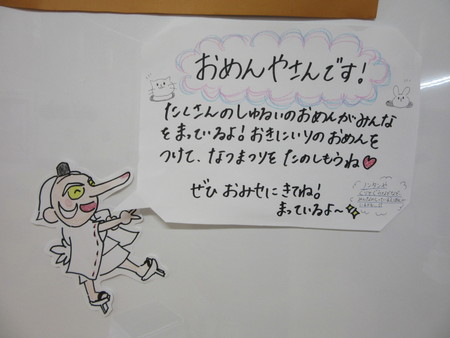 おめんやさんです!
たくさんのしゅるいのおめんがみんな
をまっているよ!おきにいりのおめんを
つけて、なつまつりをたのしもうね♥
ぜひ おみせにきてね!
まっているよ〜